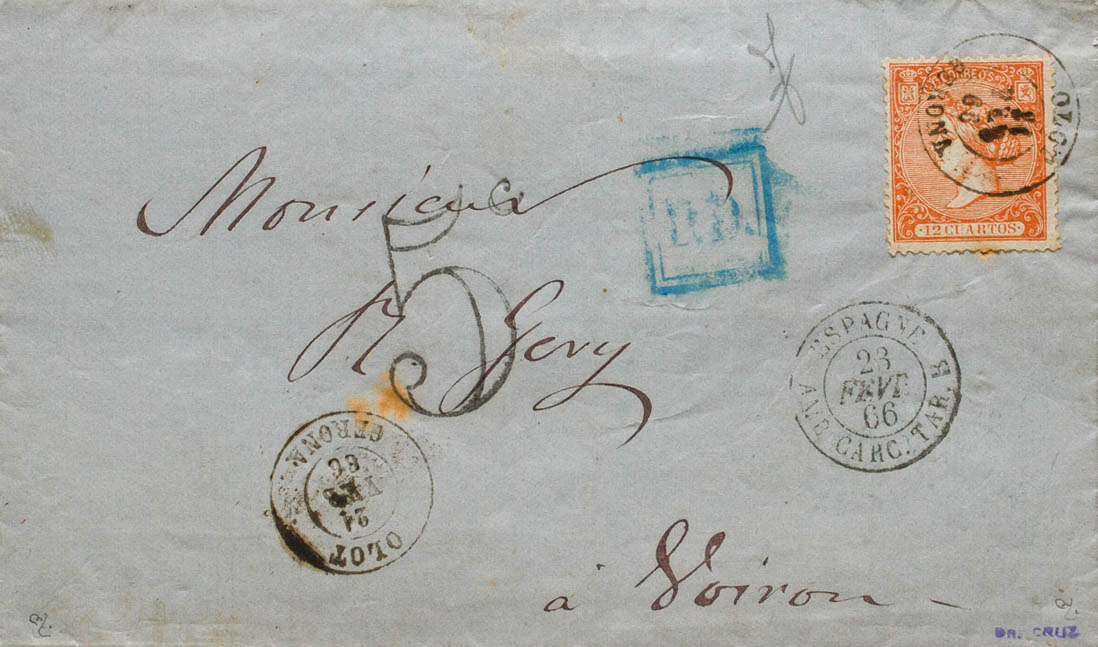 CORREOS
12 CUARTOS
OLOT
GERONA
66
P.D.
Monsieur
Gery
5
ESPAGNE
23
FEVR
66
AMB. CARC. TAR. B
GERONA
66
24
OLOT
à Voiron
DR. CRUZ